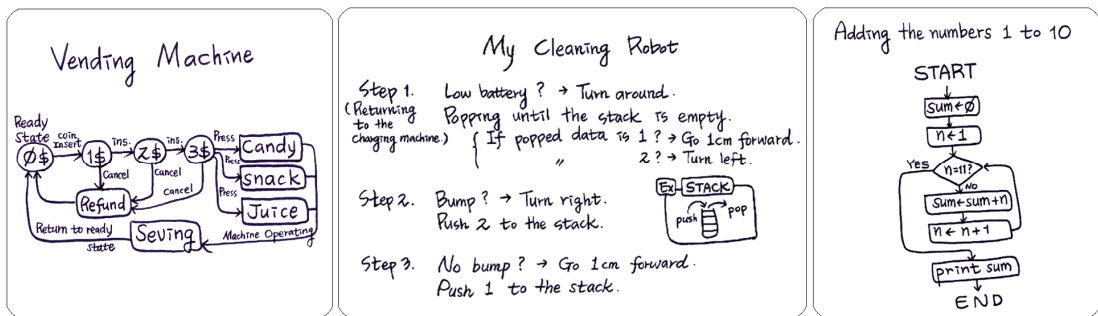 Vending Machine
Ready
State
coin
Insert
ins.
ins.
Press
Press
Press
0$
1$
2$
3$
Candy
snack
Juice
Cancel
Cancel
Cancel
Refund
Return to ready
state
Seving
Machine Operating
My Cleaning Robot
Step 1. Low battery? → Turn around.
(Returning
to the
charging machine.)
Popping until the stack is empty.
If popped data is 1? → Go 1cm forward.
" 2? → Turn left.
Step 2. Bump? → Turn right.
Push 2 to the stack.
Ex STACK
push
pop
Step 3. No bump? → Go 1cm forward.
Push 1 to the stack.
Adding the numbers 1 to 10
START
sum←0
n←1
Yes
n=11?
No
sum←sum+n
n←n+1
print sum
END